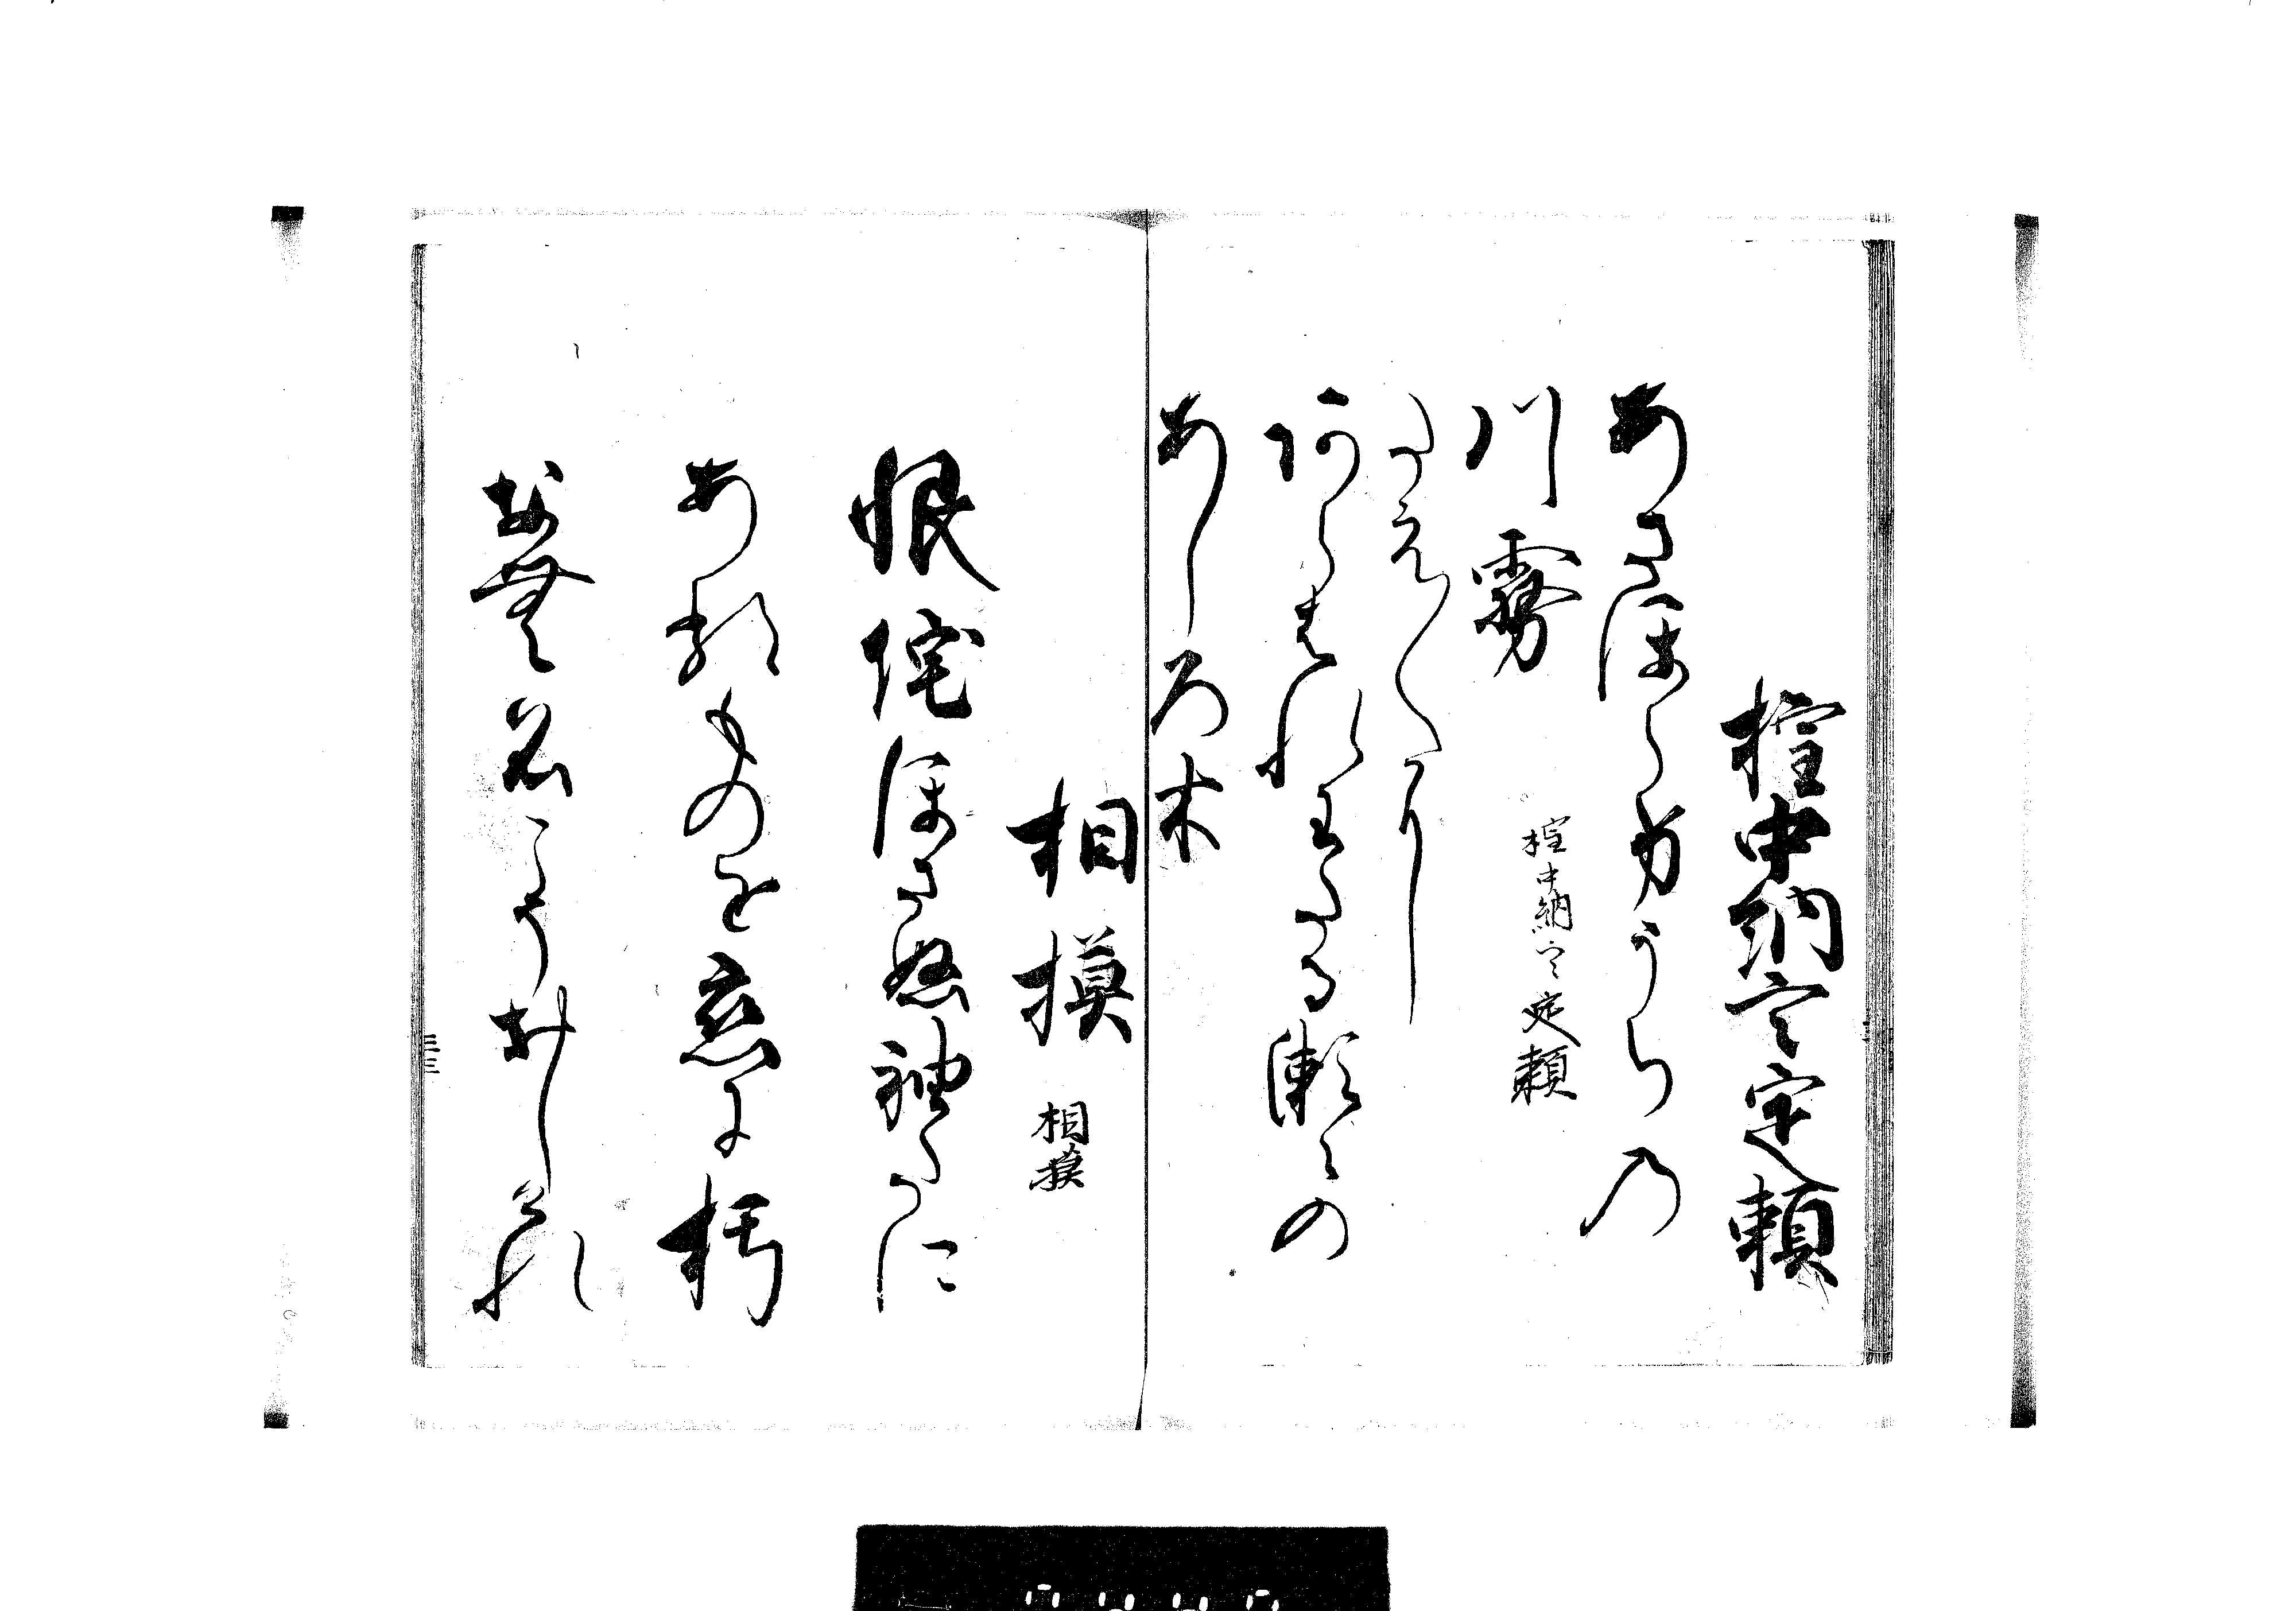 権中納言定頼
あさほらけうちの
川霧
権中納言定頼
たえ〱に
あらはれわたる瀬々の
あしろ木
相摸
相摸
恨侘ほさぬ袖たに
ある物を恋に朽
なむ名こそおしけれ